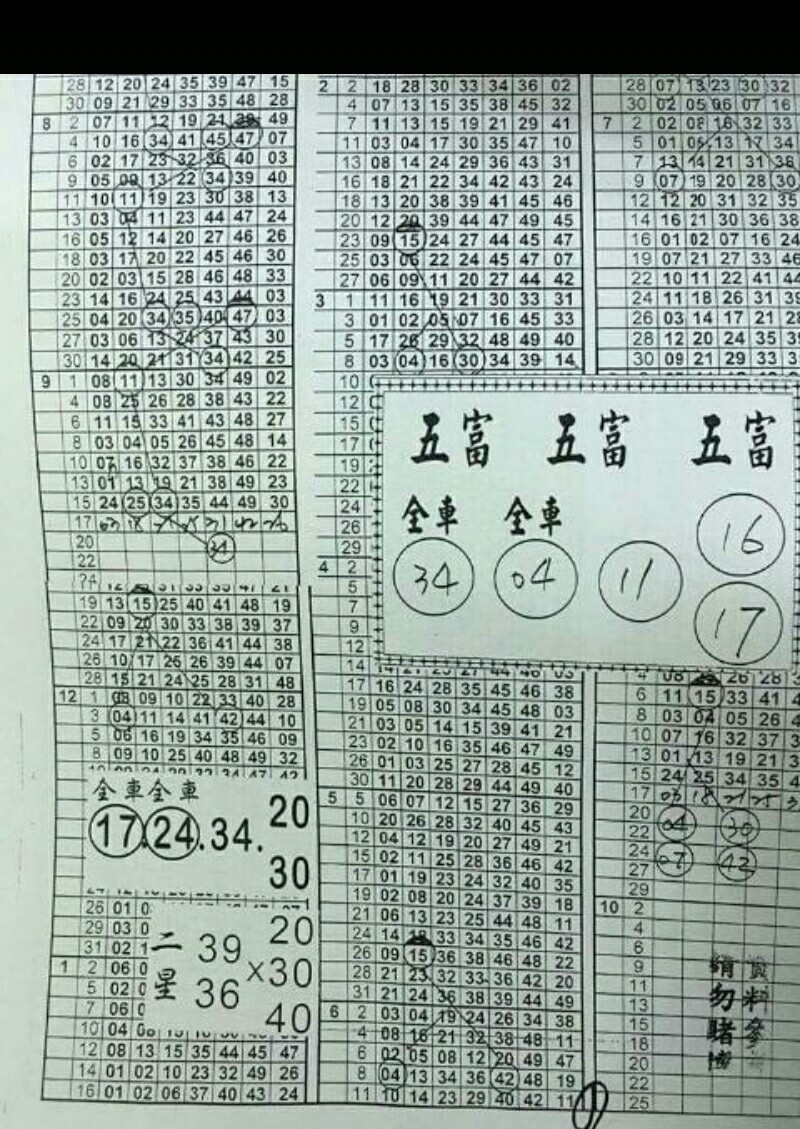 28 12 20 24 35 39 47 15
30 09 21 29 33 35 48 28
8 2 07 11 12 19 21 39 49
4 10 16 34 41 45 47 07
6 02 17 23 32 36 40 03
9 05 09 13 22 34 39 40
11 10 11 19 23 30 38 13
13 03 04 11 23 44 47 24
16 05 12 14 20 27 46 26
18 03 17 20 22 45 46 30
20 02 03 15 28 46 48 33
23 14 16 24 25 43 44 03
25 04 20 34 35 40 47 03
27 03 06 13 24 37 43 30
30 14 20 21 31 34 42 25
9 1 08 11 13 30 34 49 02
4 08 25 26 28 38 43 22
6 11 15 33 41 43 48 27
8 03 04 05 26 45 48 14
10 07 16 32 37 38 46 22
13 01 13 19 21 38 49 23
15 24 25 34 35 44 49 30
17 03 18
20 34
22
19 13 15 25 40 41 48 19
22 09 20 30 33 38 39 37
24 17 21 22 36 41 44 38
26 10 17 26 26 39 44 07
28 15 21 24 25 28 31 48
12 1 03 09 10 22 33 40 28
3 04 11 14 41 42 44 10
5 06 16 19 34 35 46 09
8 09 10 25 40 48 49 32
全車 全車
17.24.34. 20
30
26 01
29 03
31 02
1 2 06
5 02
7 06
10 04
二星 39 36 × 20 30 40
12 08 13 15 35 44 45 47
14 01 02 10 23 32 49 26
16 01 02 06 37 40 43 24
2 2 18 28 30 33 34 36 02
4 07 13 15 35 38 45 32
7 11 13 15 19 21 29 41
11 03 04 17 30 35 47 10
13 08 14 24 29 36 43 31
16 18 21 22 34 42 43 24
18 13 20 38 39 41 45 46
20 12 20 39 44 47 49 45
23 09 15 24 27 44 45 47
25 03 06 22 24 45 47 07
27 06 09 11 20 27 44 42
3 1 11 16 19 21 30 33 31
3 01 02 05 07 16 45 33
5 17 26 29 32 48 49 40
8 03 04 16 30 34 39 14
10
12
15
17
19
22
24
26
29
4 2
5
7
9
12
五富 五富 五富
全車 全車
34 04 11 16
17
17 16 24 28 35 45 46 38
19 05 08 30 34 45 48 03
21 03 05 14 15 39 41 21
23 02 10 16 35 46 47 49
26 01 03 25 27 28 45 12
30 11 20 28 29 44 49 40
5 5 06 07 12 15 27 36 29
10 20 26 28 32 40 45 43
12 04 12 19 20 27 49 21
15 02 11 25 28 36 46 42
17 01 19 23 24 32 40 35
19 02 08 20 24 37 39 18
21 06 13 23 25 44 48 11
24 14 18 33 34 35 46 42
26 09 15 36 38 46 48 22
28 21 23 32 33 36 42 20
31 21 24 36 38 39 44 49
6 2 03 04 19 24 26 34 38
4 08 16 21 32 38 48 11
6 02 05 08 12 20 49 47
8 04 13 34 36 42 48 19
11 10 14 23 29 40 42 11
28 07 13 23 30 32
30 02 05 06 07 16
7 2 02 08 16 32 33
5 01 06 13 17 34
7 13 14 21 31 38
9 07 19 20 28 30
12 12 20 31 32 35
14 16 21 30 36 38
16 01 02 07 16 24
19 07 21 27 33 46
22 10 11 22 41 44
24 11 18 26 31 39
26 03 14 17 21 28
28 12 20 24 35 39
30 09 21 29 33 35
6 11 15 33 41
8 03 04 05 26
10 07 16 32 37
13 01 13 19 21
15 24 25 34 35
17 03 18 21 25
20 04 30
22
24 07 42
27
29
10 2
4
6
9
11
13
15
18
20
22
25
資料參
請勿賭博